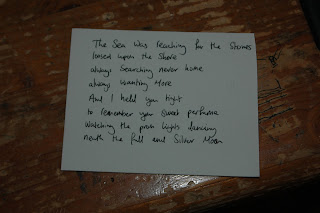 The Sea was reaching for the Stones
laved upon the Shore
always searching never home
always wanting More
And I held you tight
to remember your sweet perfume
watching the prom lights dancing
neath the full and Silver Moon